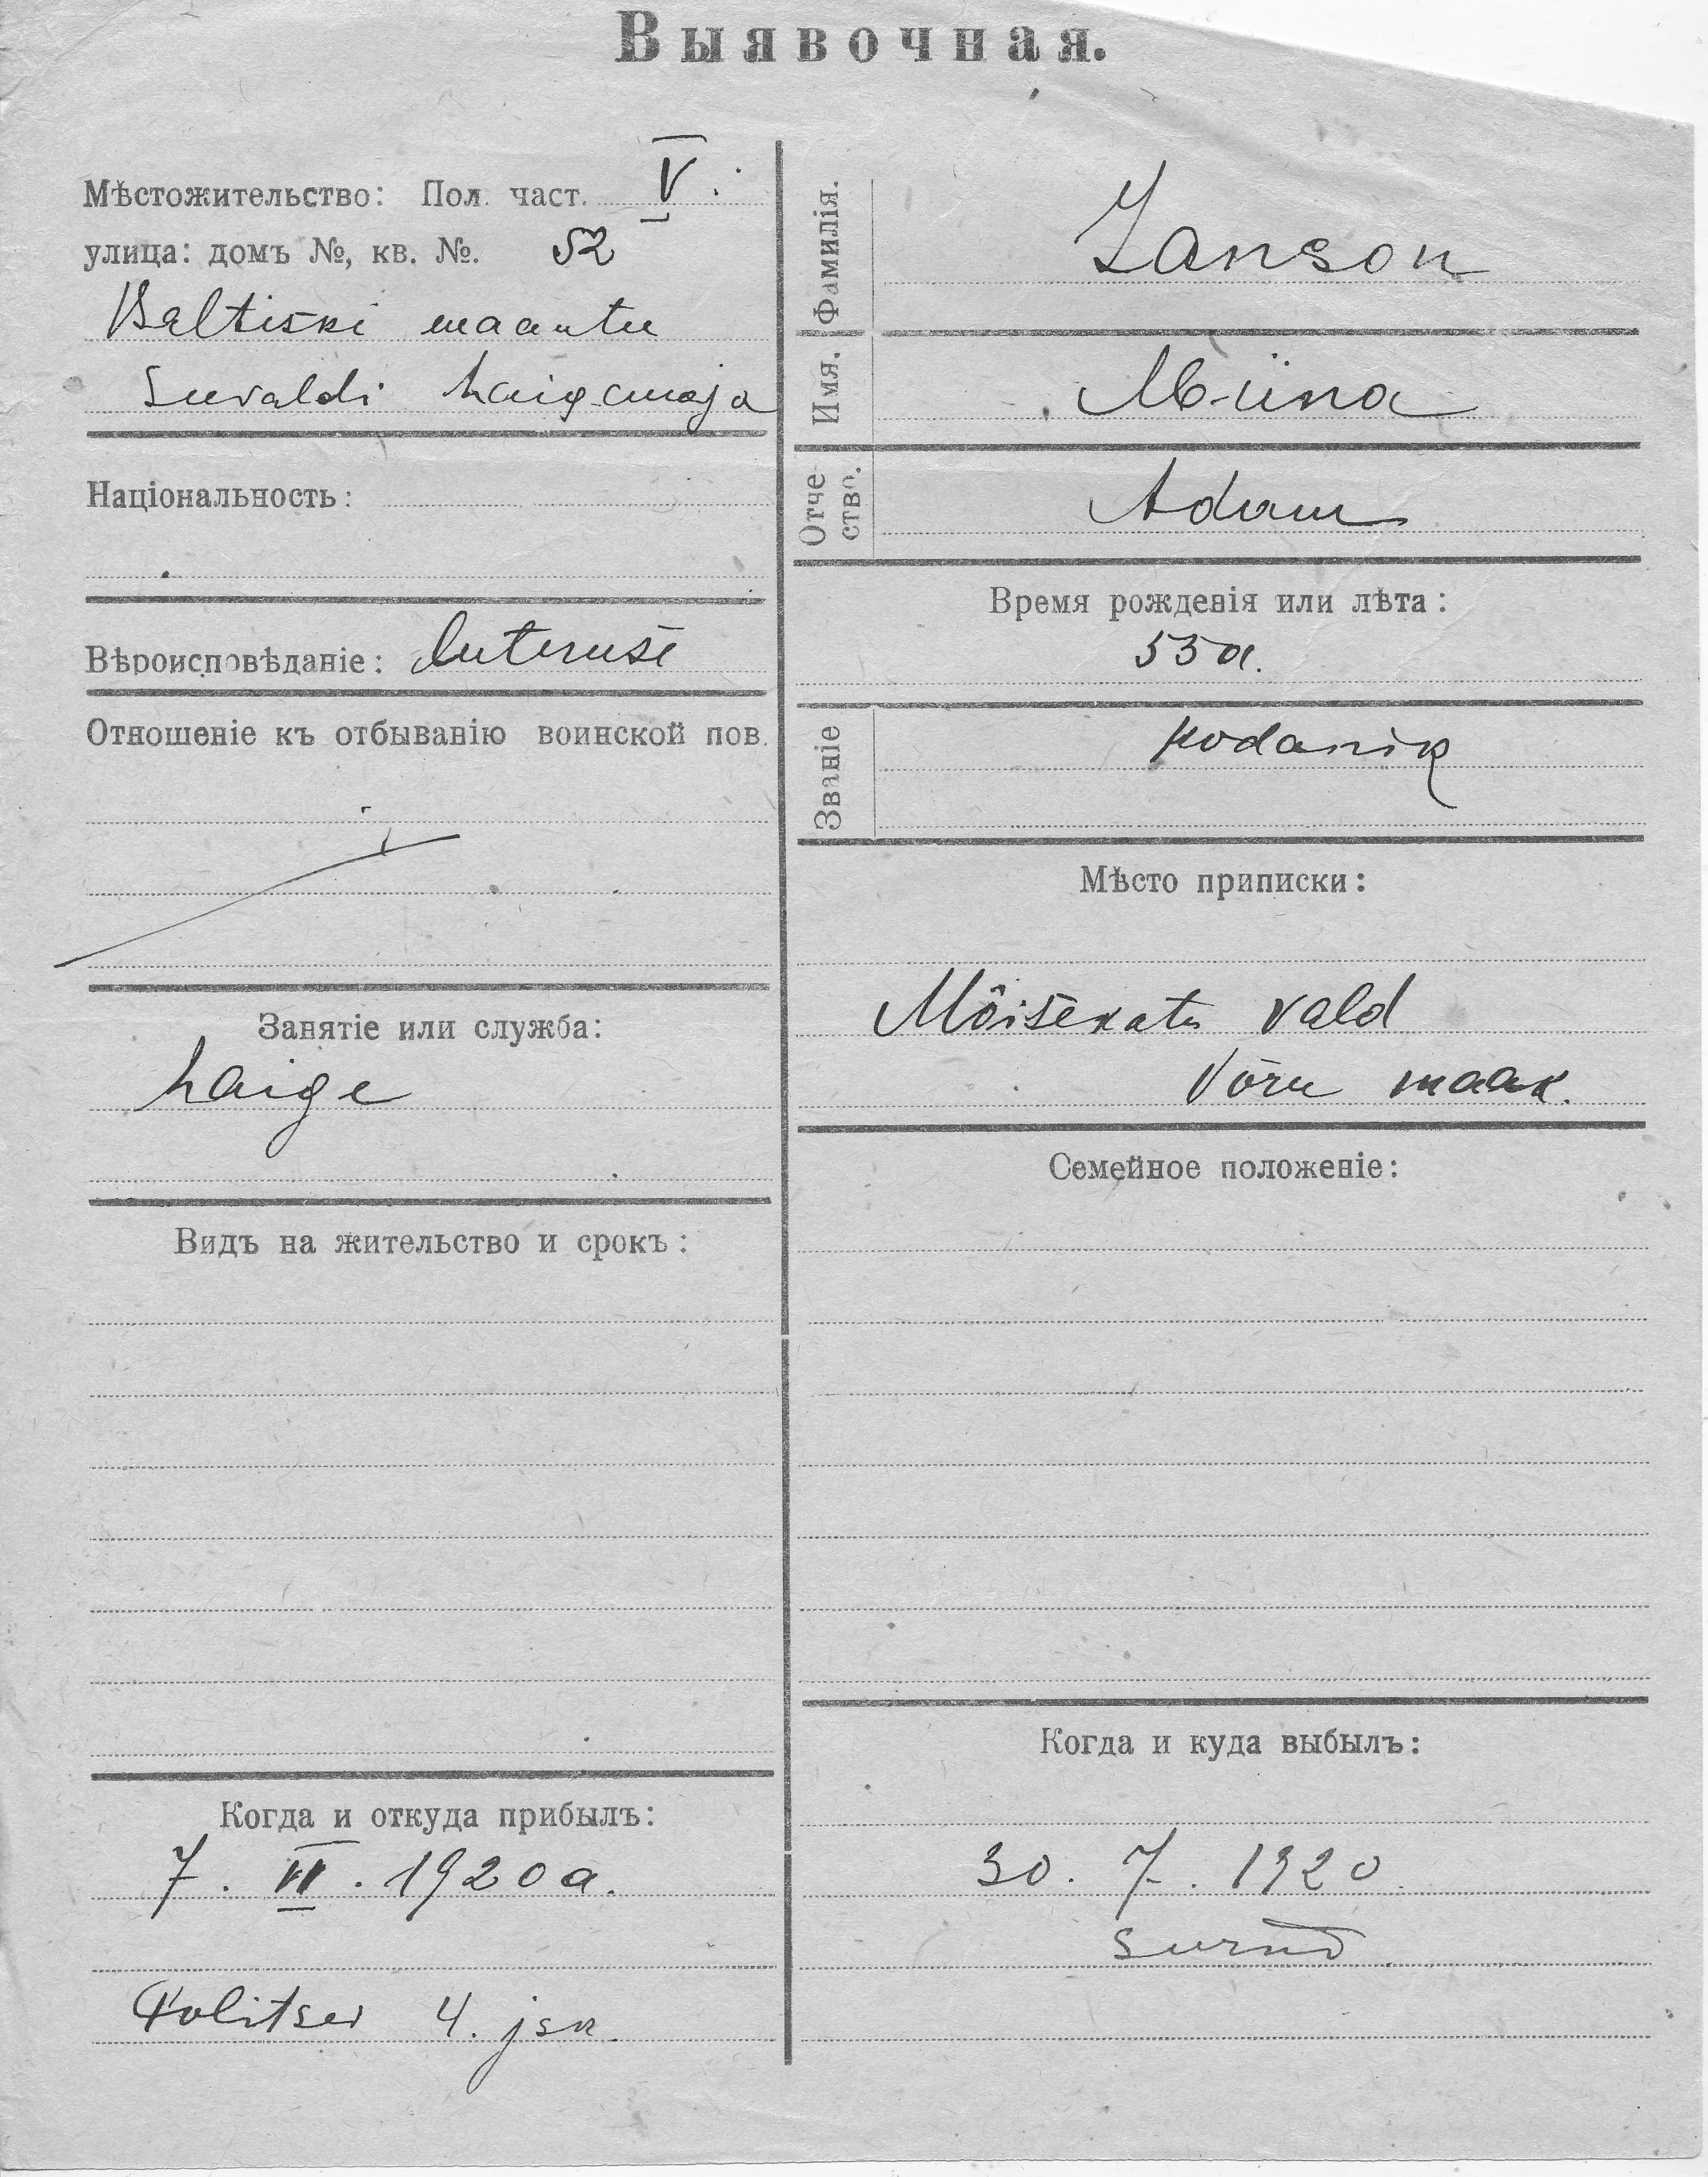 Выявочная.
Мѣстожительство: Пол. част. V.
улица: домъ №, кв. №. 52
Baltiski maantee
Seevaldi haigemaja
Національность:
Вѣроисповѣданіе: luteruse
Отношеніе къ отбыванію воинской пов.
Занятіе или служба:
haige
Видъ на жительство и срокъ:
Когда и откуда прибылъ:
7. II. 1920 a.
Politsei 4. jsk.
Фамилія. Janson
Имя. Miina
Отче
ство. Adam
Время рожденія или лѣта:
55 a.
Званіе kodanik
Мѣсто приписки:
Mõisekatsi vald
Võru maak.
Семейное положеніе:
Когда и куда выбылъ:
30. 7. 1920
surnud